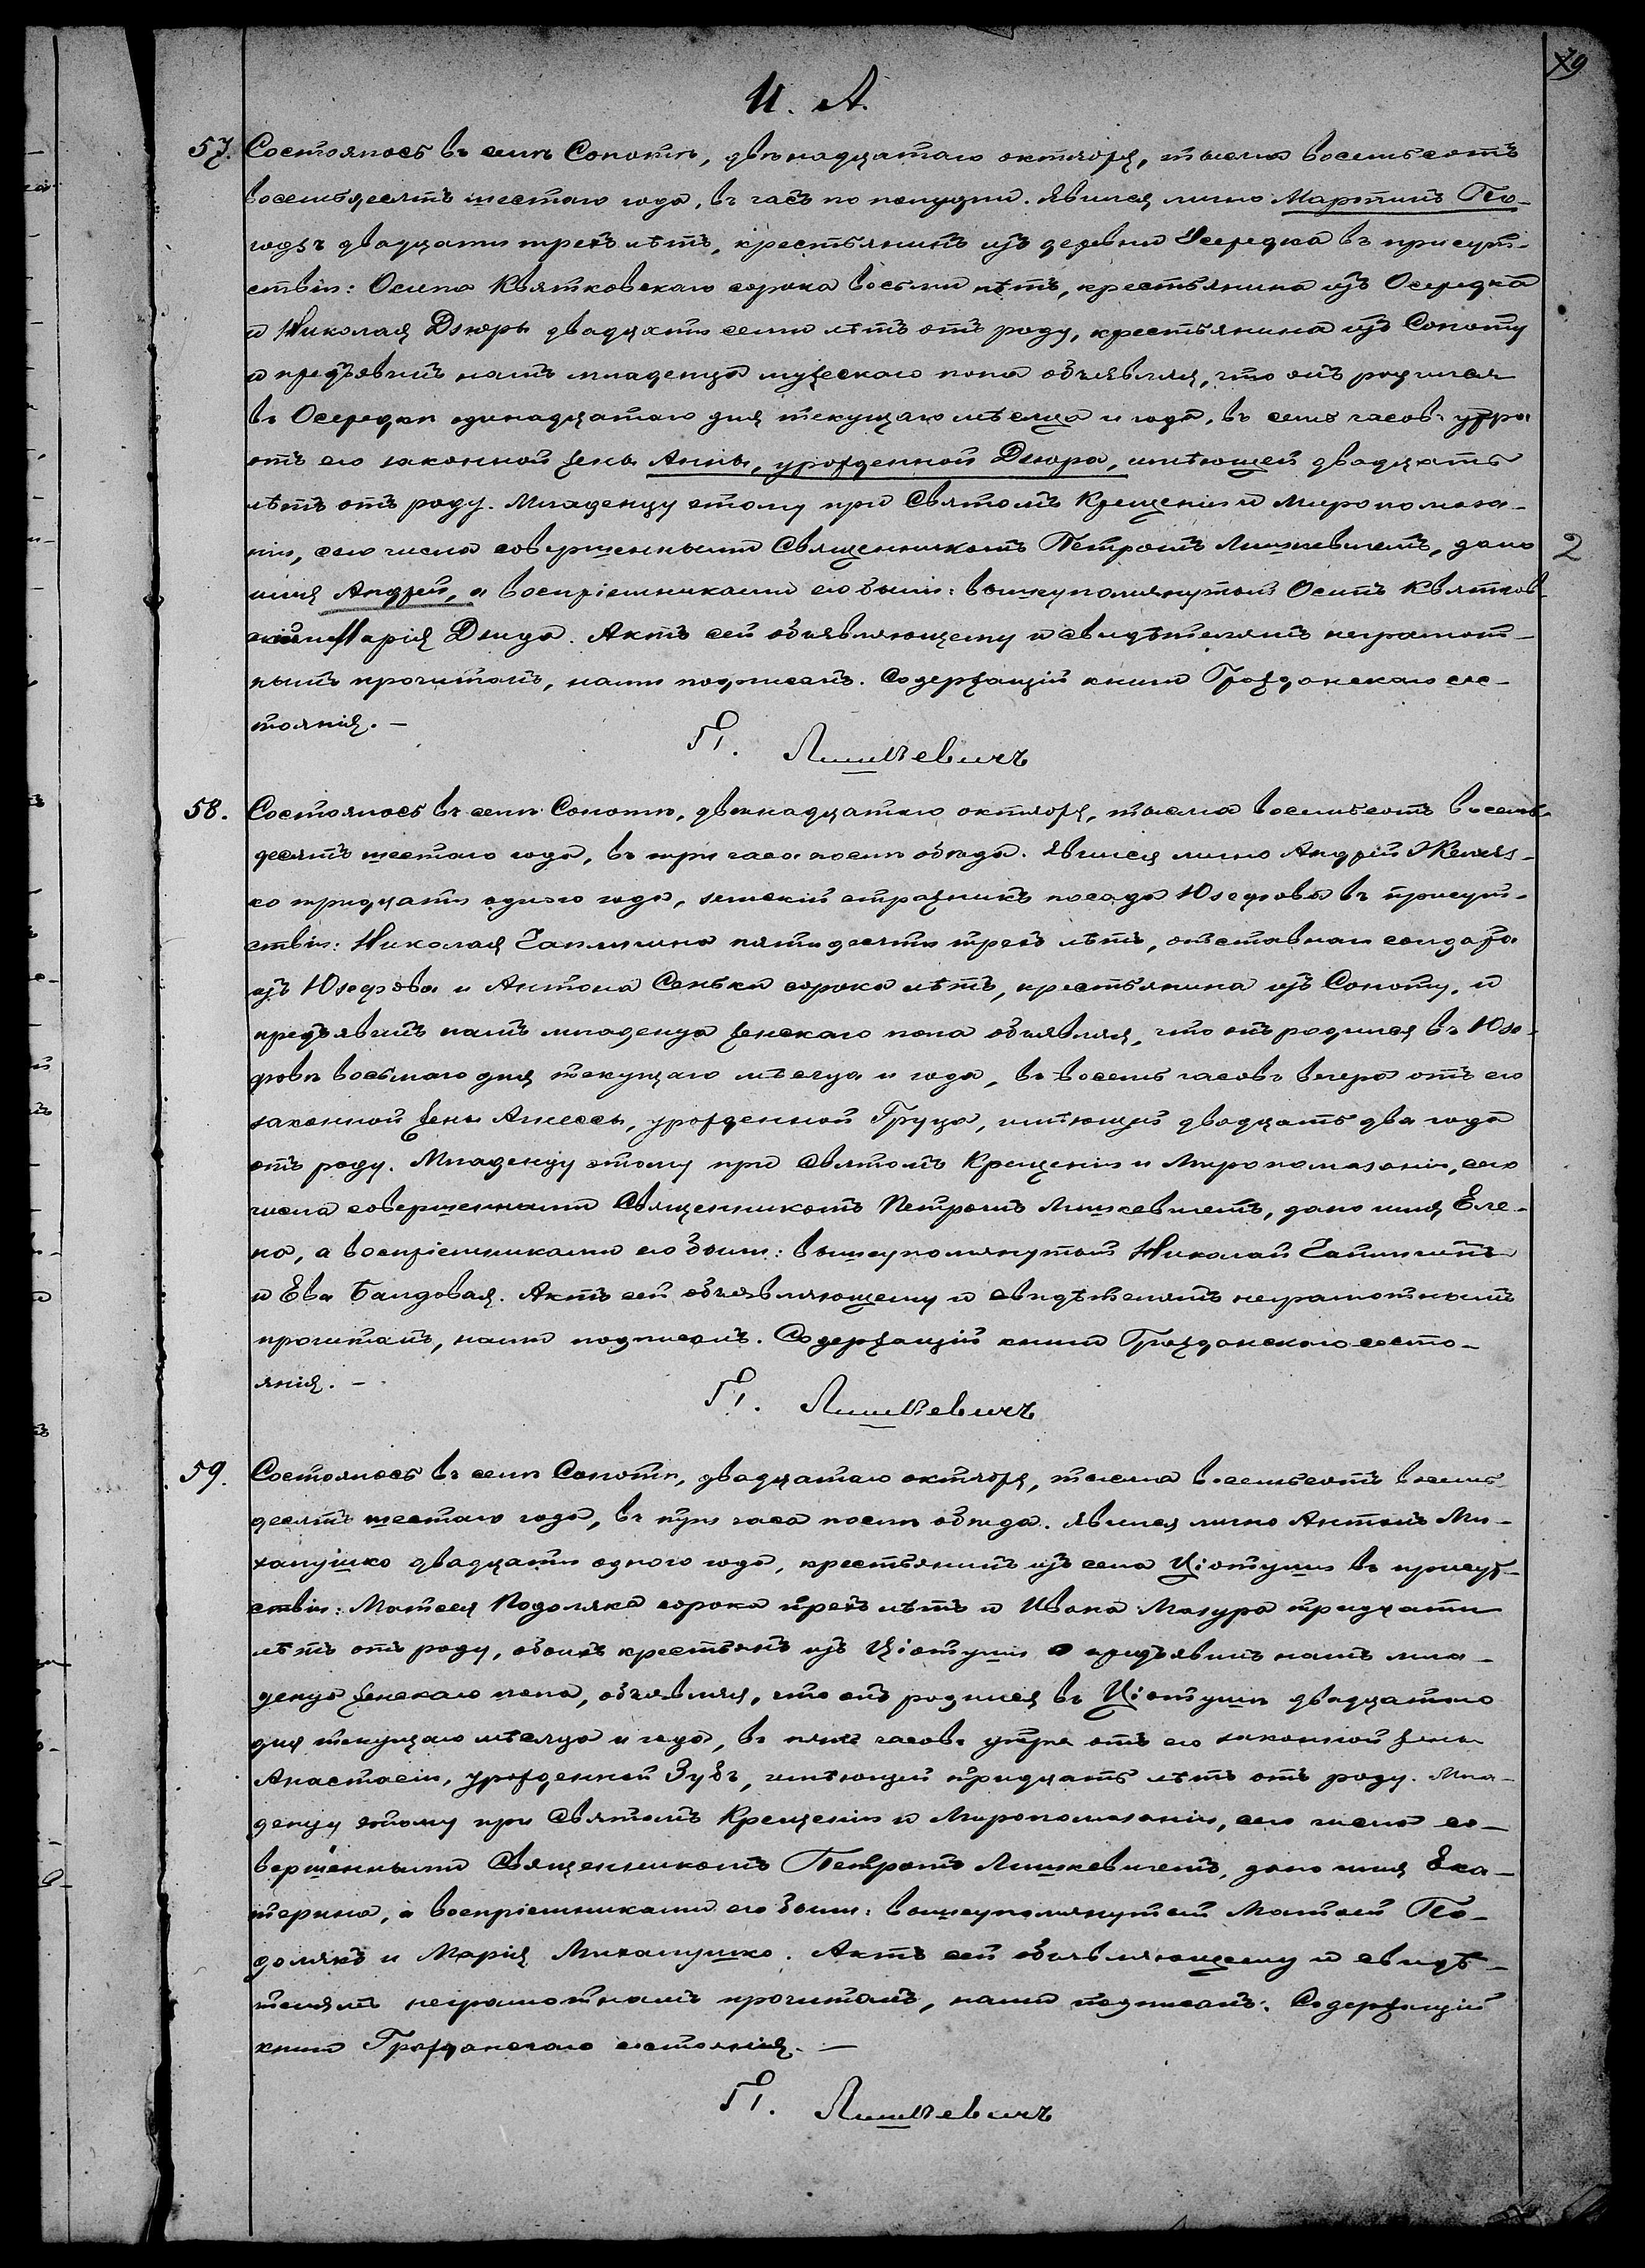 79
И. А.
57. Состоялось въ селѣ Сопотѣ, двѣнадцатаго октября, тысяча восемьсотъ
восемьдесятъ шестаго года, въ часъ по полудни. Явился лично Мартинъ По-
годзъ двадцати трехъ лѣтъ, крестьянинъ изъ деревни Осередка въ присут-
ствіи: Осипа Квятковскаго сорока восьми лѣтъ, крестьянина изъ Осередка
и Николая Дзюры двадцати семи лѣтъ отъ роду, крестьянина изъ Сопоту
и предъявилъ намъ младенца мужескаго пола объявляя, что онъ родился
въ Осередкѣ одинадцатаго дня текущаго мѣсяца и года, въ семь часовъ утра
отъ его законной жены Анны, урожденной Дзюра, имѣющей двадцать
лѣтъ отъ роду. Младенцу этому при Святомъ Крещеніи и Миропомаза-
ніи, сего числа совершенными Священникомъ Петромъ Лишкевичемъ, дано 2
имя Андрей, а воспріемниками его были: вышеупомянутый Осипъ Квятков-
скій и Марія Дзида. Актъ сей объявляющему и свидѣтелямъ неграмот-
нымъ прочитанъ, нами подписанъ. Содержащій книги Гражданскаго сос-
тоянія. –
П. Лишкевичъ
58. Состоялось въ селѣ Сопотѣ, двѣнадцатаго октября, тысяча восемьсотъ восемь-
десятъ шестаго года, въ три часа послѣ обѣда. Явился лично Андрей
тридцати одного года, земскій стражникъ посада Юзефова въ присут-
ствіи: Николая Чаплыгина пятидесяти трехъ лѣтъ, отставнаго солдата
изъ Юзефова и Антона Сеньки сорока лѣтъ, крестьянина изъ Сопоту, и
предъявилъ намъ младенца женскаго пола объявляя, что онъ родился въ Юзе-
фовѣ восьмаго дня текущаго мѣсяца и года, въ восемь часовъ вечера отъ его
законной жены Агнессы, урожденной Груца, имѣющей двадцать два года
отъ роду. Младенцу этому при Святомъ Крещеніи и Миропомазаніи, сего
числа совершенными Священникомъ Петромъ Лишкевичемъ, дано имя Еле-
на, а воспріемниками его были: вышеупомянутый Николай Чаплыгинъ
и Ева Балдовая. Актъ сей объявляющему и свидѣтелямъ неграмотнымъ
прочитанъ, нами подписанъ. Содержащій книги Гражданскаго состо-
янія. –
П. Лишкевичъ
59. Состоялось въ селѣ Сопотѣ, двадцатаго октября, тысяча восемьсотъ восемь-
десятъ шестаго года, въ три часа послѣ обѣда. Явился лично Антонъ Ми-
халушко двадцати одного года, крестьянинъ изъ села Ціотуши въ присут-
ствіи: Матвея Подоляка сорока трехъ лѣтъ и Ивана Мазура тридцати
лѣтъ отъ роду, обоихъ крестьянъ изъ Ціотуши и предъявилъ намъ мла-
денца женскаго пола, объявляя, что онъ родился въ Ціотушѣ двадцатаго
дня текущаго мѣсяца и года, въ пять часовъ утра отъ его законной жены
Анастасіи, урожденной Зубъ, имѣющей тридцать лѣтъ отъ роду. Мла-
денцу этому при Святомъ Крещеніи и Миропомазаніи, сего числа со-
вершенными Священникомъ Петромъ Лишкевичемъ, дано имя Ека-
терина, а воспріемниками его были: вышеупомянутый Матвей По-
долякъ и Марія Михалушко. Актъ сей объявляющему и свидѣ-
телямъ неграмотнымъ прочитанъ, нами подписанъ. Содержащій
книги Гражданскаго состоянія. –
П. Лишкевичъ